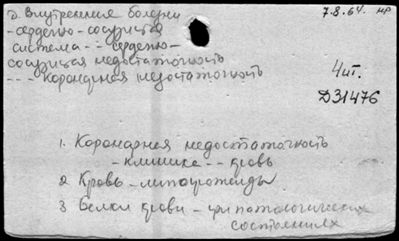 д. Внутренние болезни
7.8.64. мр
- сердечно-сосудистая
система -- сердечно-
сосудистая недостаточность
--- коронарная недостаточность
4ит.
Д31476
1. Коронарная недостаточность
- клиника -- кровь
2 Кровь - липопротеиды
3 Белки крови - при патологических
состояниях